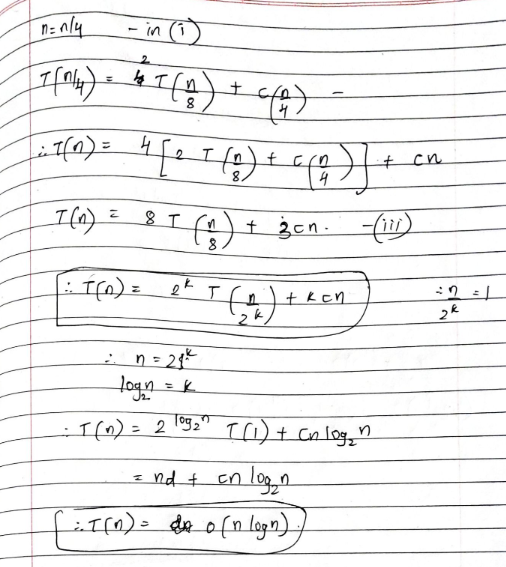 n = n/4 - in (i)
T(n/4) = 2 T(n/8) + c(n/4) -
∴ T(n) = 4 [2 T(n/8) + c(n/4)] + cn
T(n) = 8 T(n/8) + 3cn. - (iii)
∴ T(n) = 2^k T(n/2^k) + kcn ∴ n/2^k = 1
∴ n = 2^k
log₂n = k
∴ T(n) = 2^log₂n T(1) + cn log₂n
= nd + cn log₂n
∴ T(n) = O(n logn).